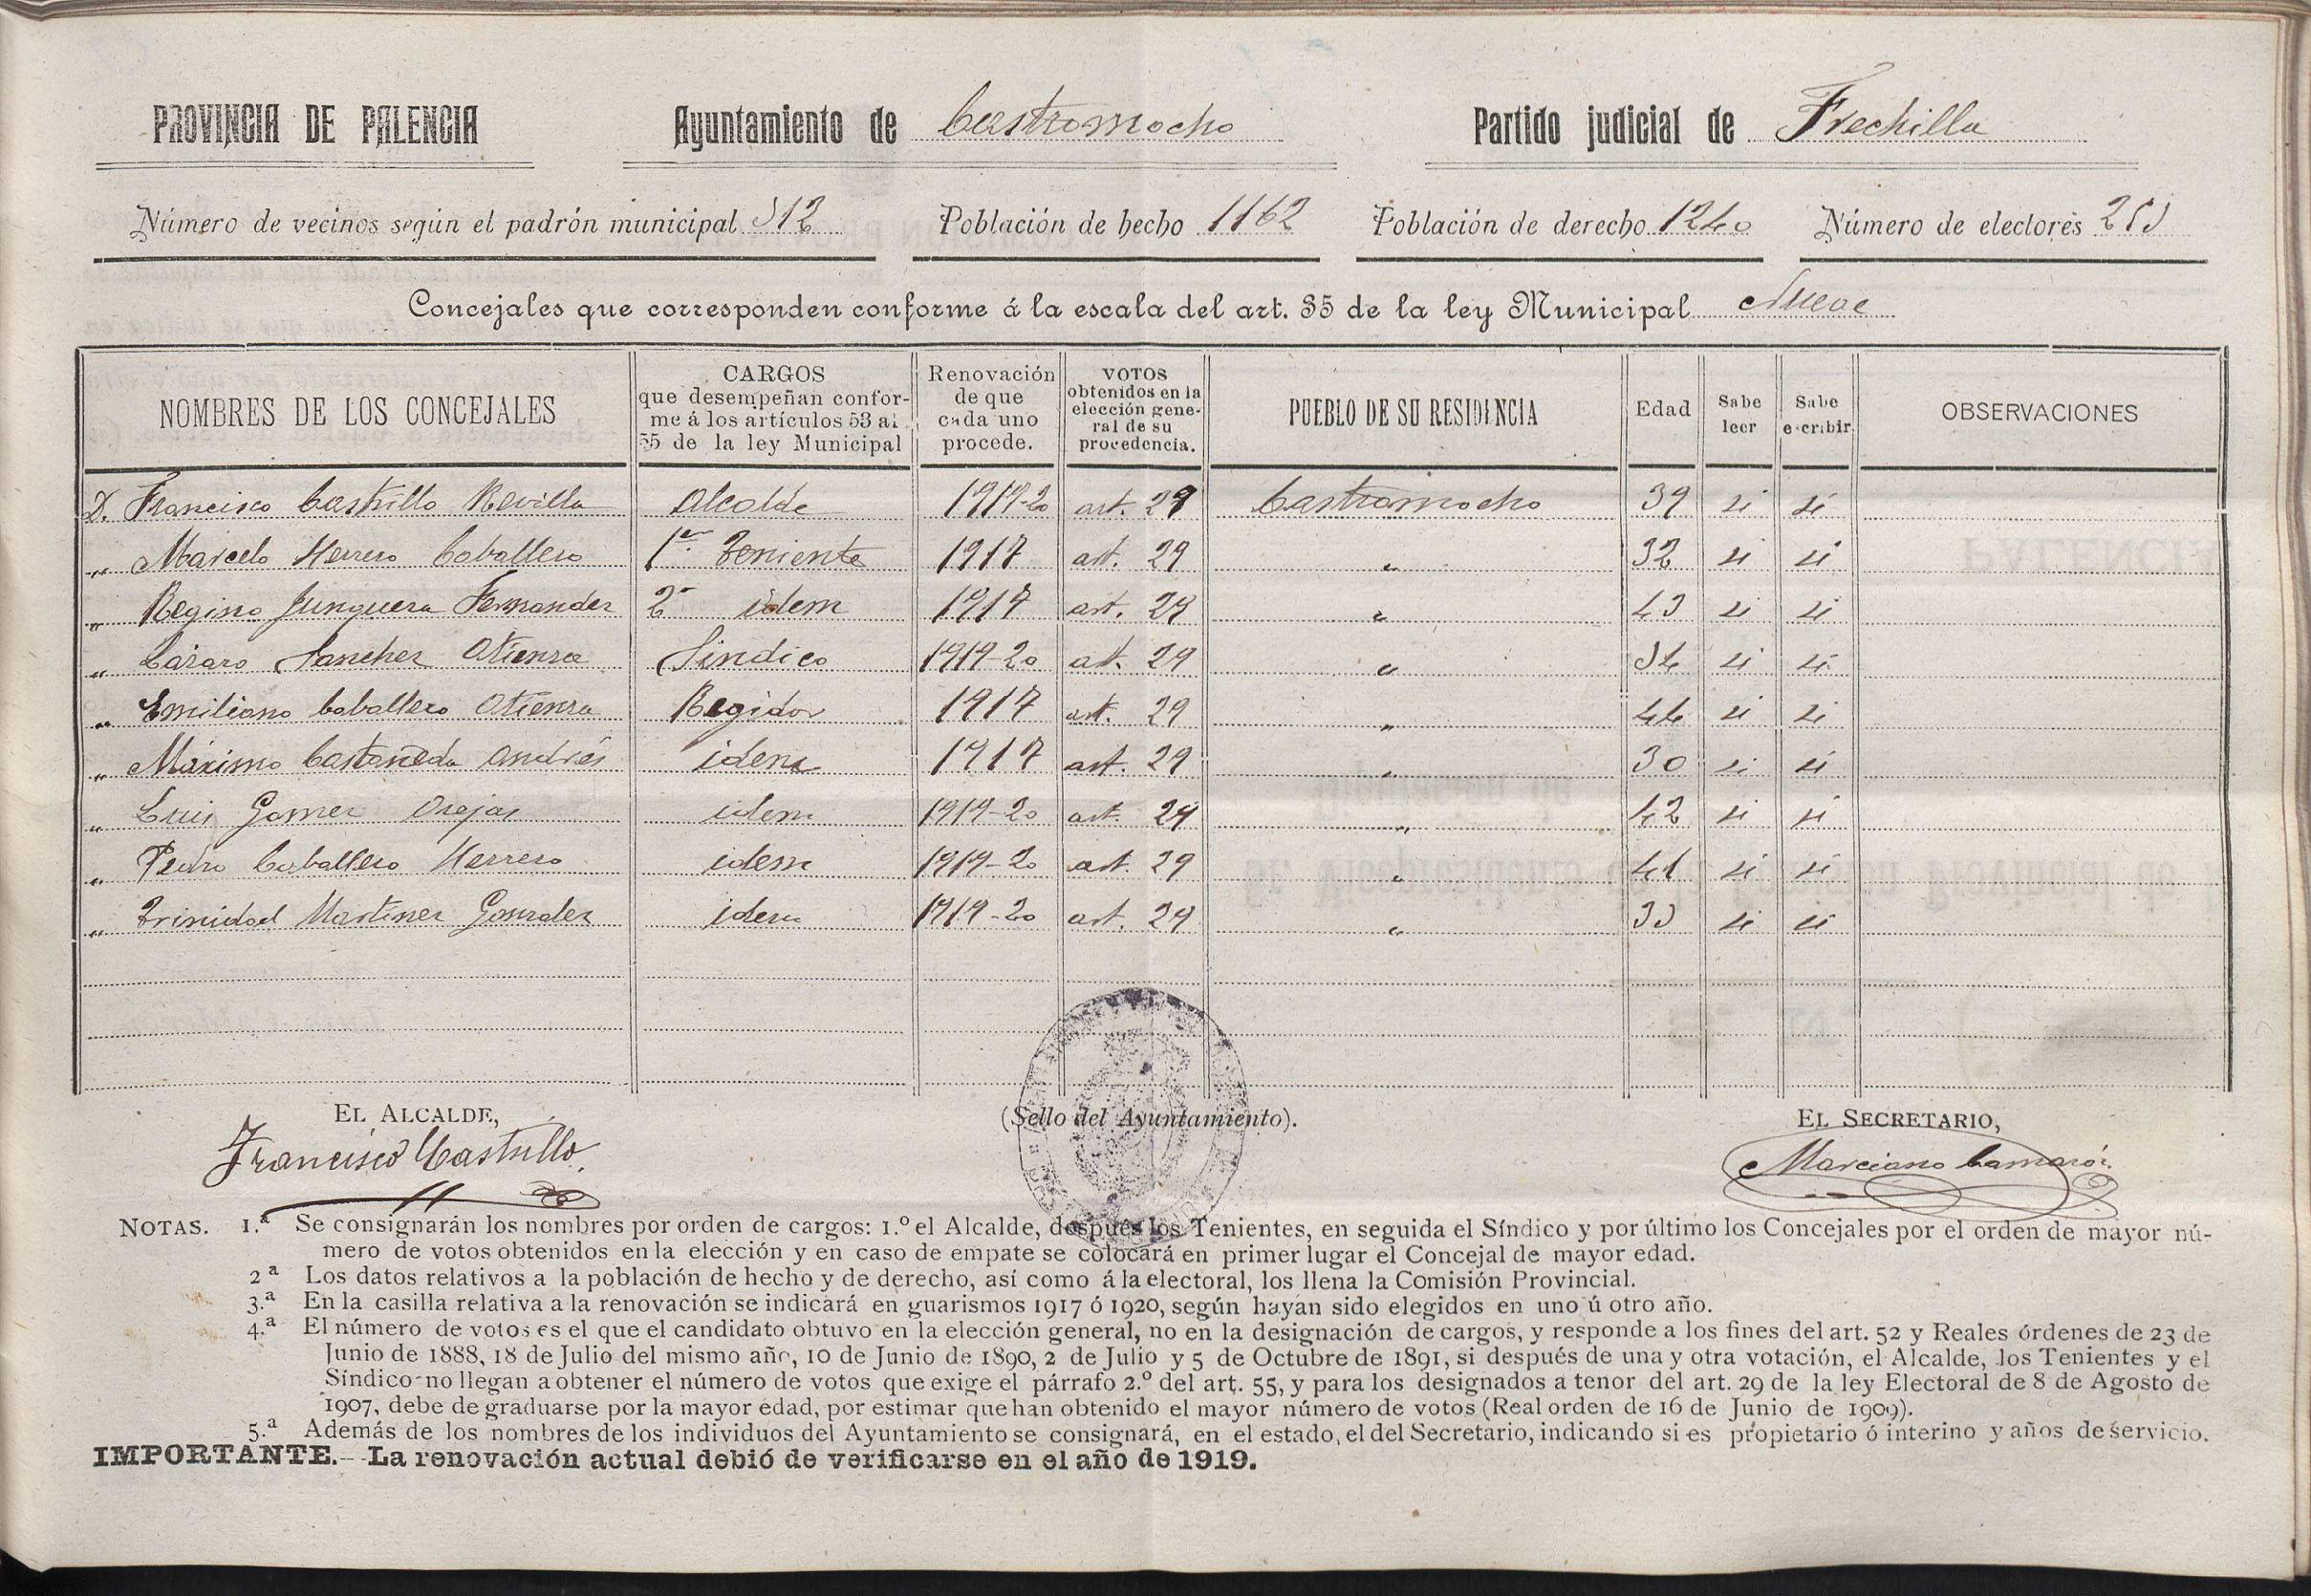 PROVINCIA DE PALENCIA Ayuntamiento de Castromocho Partido judicial de Frechilla
Número de vecinos según el padrón municipal 312 Población de hecho 1162 Población de derecho 1240 Número de electores
Concejales que corresponden conforme á la escala del art. 35 de la ley Municipal Nueve
NOMBRES DE LOS CONCEJALES
CARGOS
que desempeñan confor-
me á los artículos 53 al
55 de la ley Municipal
Renovación
de que
cada uno
procede.
VOTOS
obtenidos en la
elección gene-
ral de su
procedencia.
PUEBLO DE SU RESIDENCIA
Edad
Sabe
leer
Sabe
escribir
OBSERVACIONES
D. Francisco Castrillo Revilla Alcalde 1919-20 art. 29 Castromocho 39 si si
„ Marcelo Herrero Caballero 1er Teniente 1917 art. 29 „ 32 si si
„ Regino Junquera Fernandez 2º idem 1917 art. 29 „ 43 si si
„ Lázaro Sanchez Atienza Sindico 1919-20 art. 29 „ 34 si si
„ Emiliano Caballero Atienza Regidor 1917 art. 29 „ 44 si si
„ Máximo Castañeda Andrés idem 1917 art. 29 „ 30 si si
„ Luis Gomez Orejas idem 1919-20 art. 29 „ 42 si si
„ Pedro Caballero Herrero idem 1919-20 art. 29 „ 41 si si
„ Trinidad Martinez Gonzalez idem 1919-20 art. 29 „ 33 si si
EL ALCALDE, (Sello del Ayuntamiento). EL SECRETARIO,
Francisco Castrillo Marciano Camazón
NOTAS. 1.ª Se consignarán los nombres por orden de cargos: 1.º el Alcalde, después los Tenientes, en seguida el Síndico y por último los Concejales por el orden de mayor nú-
mero de votos obtenidos en la elección y en caso de empate se colocará en primer lugar el Concejal de mayor edad.
2ª Los datos relativos a la población de hecho y de derecho, así como á la electoral, los llena la Comisión Provincial.
3.ª En la casilla relativa a la renovación se indicará en guarismos 1917 ó 1920, según hayan sido elegidos en uno ú otro año.
4.ª El número de votos es el que el candidato obtuvo en la elección general, no en la designación de cargos, y responde a los fines del art. 52 y Reales órdenes de 23 de
Junio de 1888, 18 de Julio del mismo año, 10 de Junio de 1890, 2 de Julio y 5 de Octubre de 1891, si después de una y otra votación, el Alcalde, los Tenientes y el
Síndico no llegan a obtener el número de votos que exige el párrafo 2.º del art. 55, y para los designados a tenor del art. 29 de la ley Electoral de 8 de Agosto de
1907, debe de graduarse por la mayor edad, por estimar que han obtenido el mayor número de votos (Real orden de 16 de Junio de 1909).
5.ª Además de los nombres de los individuos del Ayuntamiento se consignará, en el estado, el del Secretario, indicando si es propietario ó interino y años de servicio.
IMPORTANTE.—La renovación actual debió de verificarse en el año de 1919.